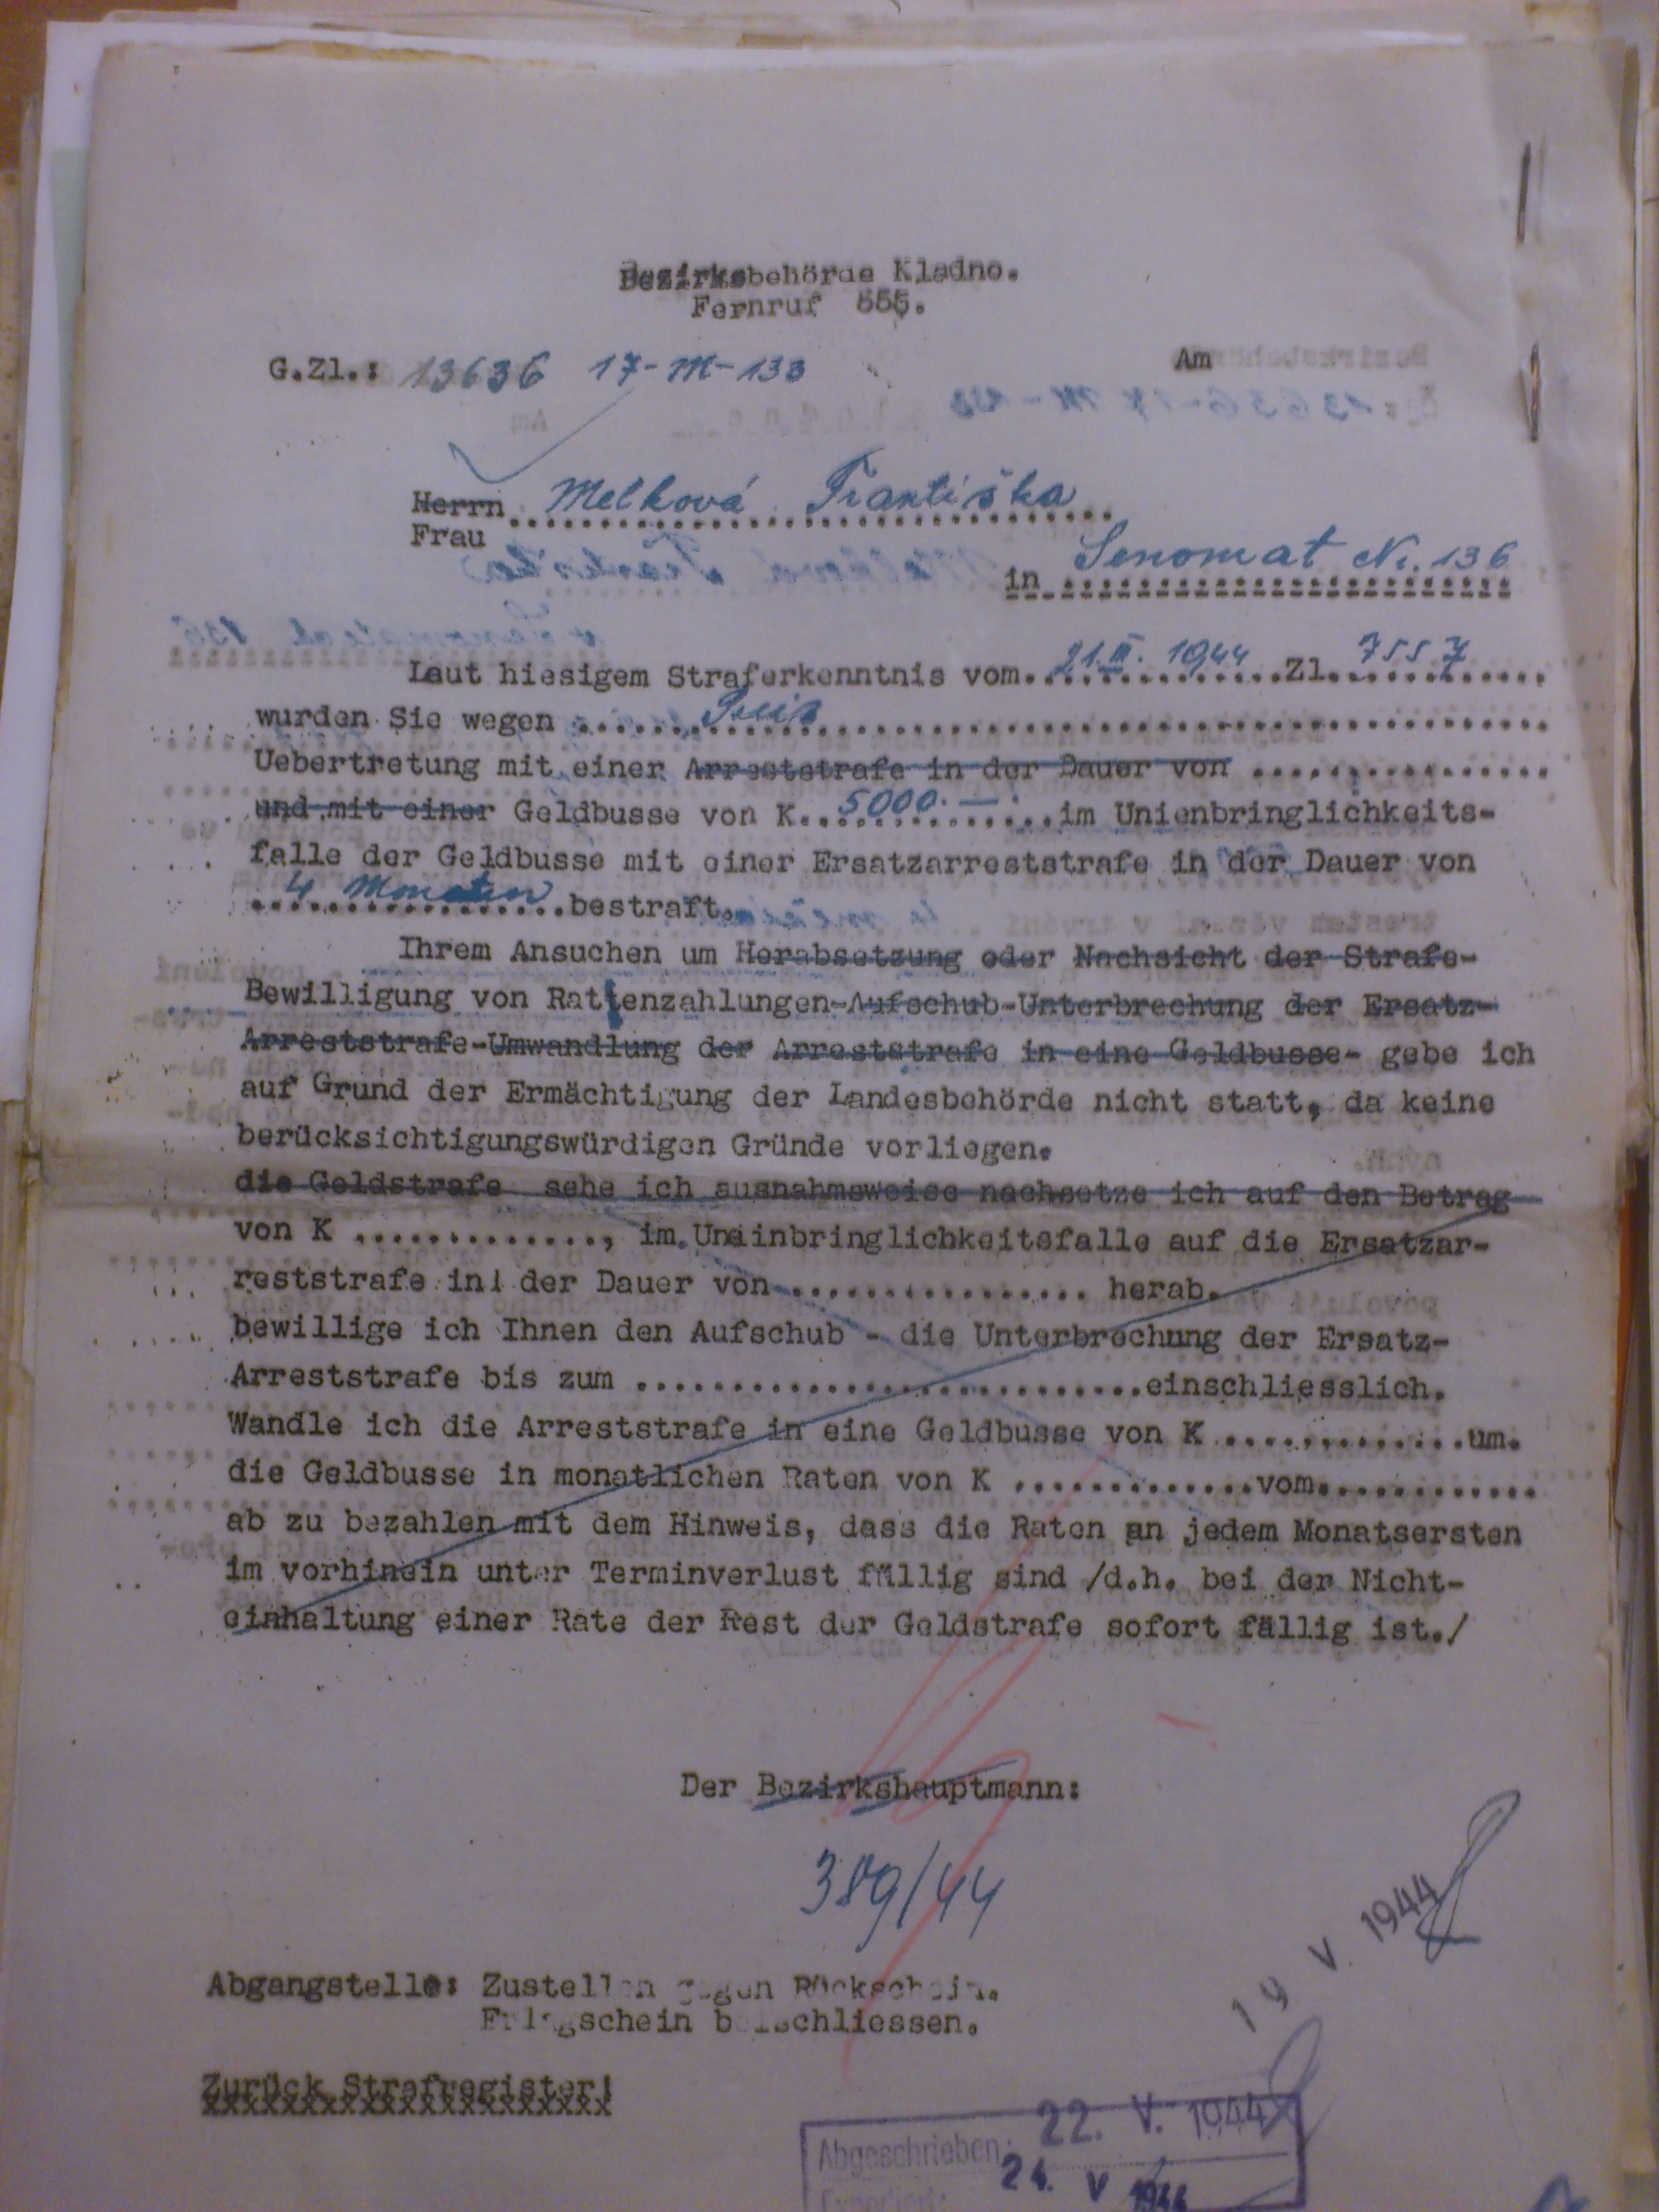 Bezirksbehörde Kladno.
Fernruf 555.
G.Zl.: 13636 17-M-133
Am
Herrn Melková Františka
Frau
in Senomat Nr. 136
Laut hiesigem Straferkenntnis vom 21.III. 1944 Zl. 7557
wurden Sie wegen Preis
Uebertretung mit einer Arreststrafe in der Dauer von ................
und mit einer Geldbusse von K. 5000.— im Unienbringlichkeits-
falle der Geldbusse mit einer Ersatzarreststrafe in der Dauer von
4 Monaten bestraft.
Ihrem Ansuchen um Herabsetzung oder Nachsicht der Strafe-
Bewilligung von Rattenzahlungen-Aufschub-Unterbrechung der Ersatz-
Arreststrafe-Umwandlung der Arreststrafe in eine Geldbusse- gebe ich
auf Grund der Ermächtigung der Landesbehörde nicht statt, da keine
berücksichtigungswürdigen Gründe vorliegen.
die Geldstrafe sehe ich ausnahmsweise nachsetze ich auf den Betrag
von K .............., im Uneinbringlichkeitsfalle auf die Ersatzar-
reststrafe in der Dauer von ................ herab.
bewillige ich Ihnen den Aufschub - die Unterbrechung der Ersatz-
Arreststrafe bis zum ............................einschliesslich.
Wandle ich die Arreststrafe in eine Geldbusse von K .............um.
die Geldbusse in monatlichen Raten von K .............vom............
ab zu bezahlen mit dem Hinweis, dass die Raten an jedem Monatsersten
im vorhinein unter Terminverlust fällig sind /d.h. bei der Nicht-
einhaltung einer Rate der Rest der Geldstrafe sofort fällig ist./
Der Bezirkshauptmann:
389/44
19 V. 1944
Abgangstelle: Zustellen gegen Rückschein.
Erlagschein beischliessen.
Zurück Strafregister!
xxxxxxxxxxxxxxxxxxxxx
Abgeschrieben: 22. V. 1944
Expediert: 24. V 1944